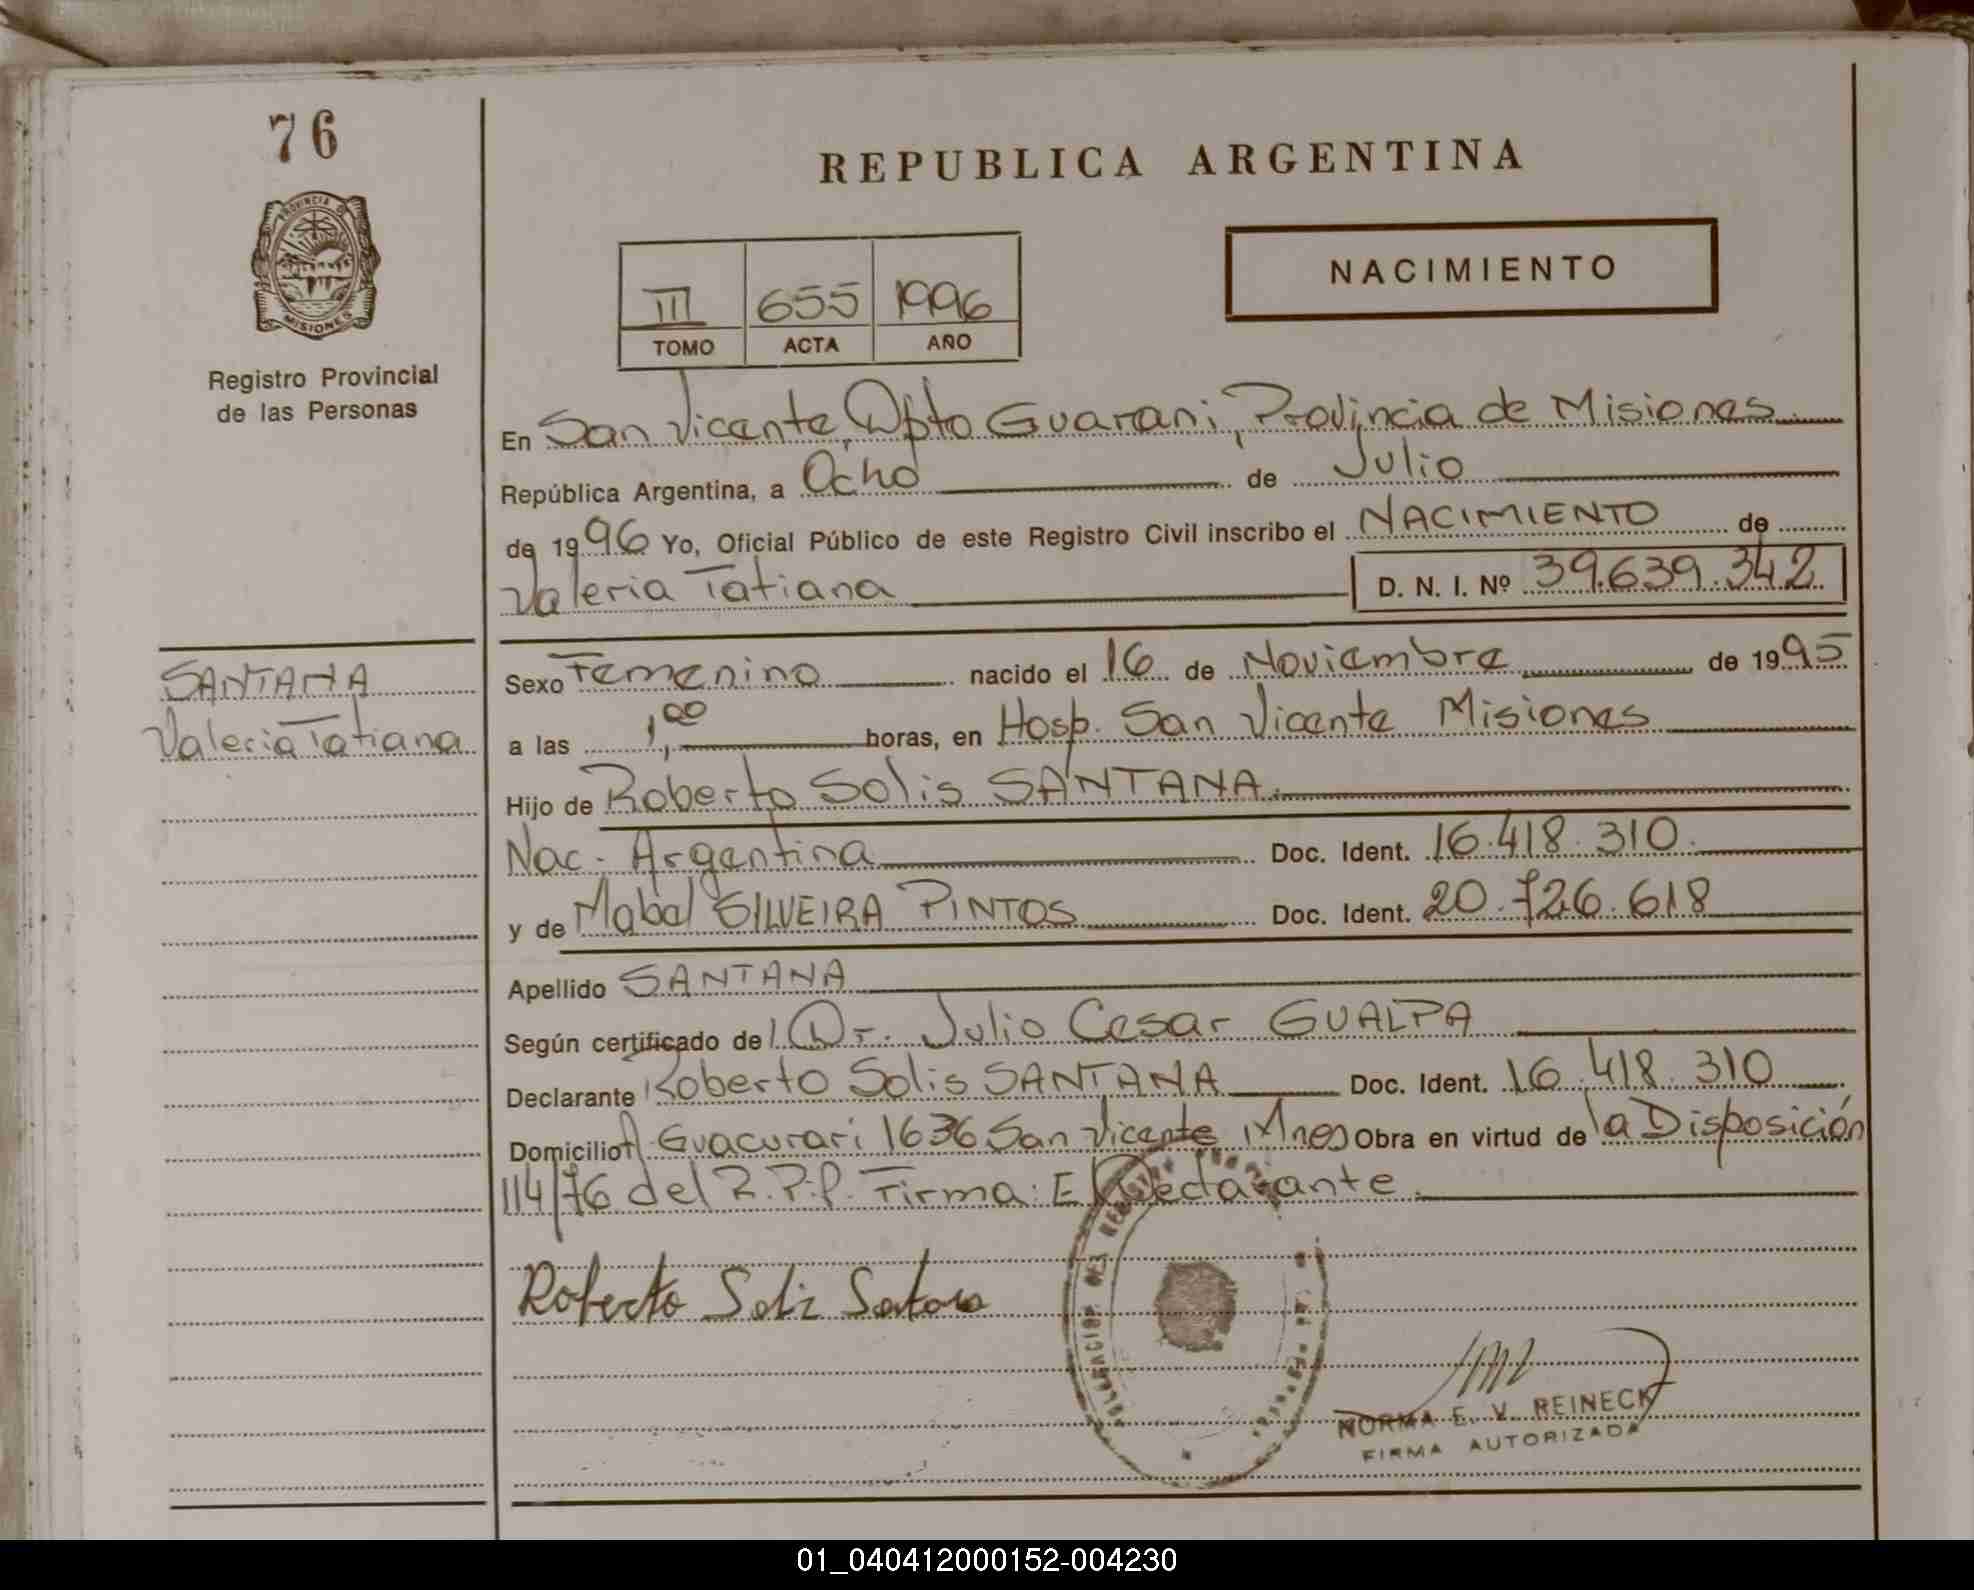 76
PROVINCIA D
MISIONES
Registro Provincial
de las Personas
REPUBLICA ARGENTINA
NACIMIENTO
III 655 1996
TOMO ACTA AÑO
En San Vicente, Dpto Guarani, Provincia de Misiones
República Argentina, a Ocho de Julio
de 1996 Yo, Oficial Público de este Registro Civil inscribo el NACIMIENTO de
Valeria Tatiana D. N. I. Nº 39.639.342
SANTANA
Valeria Tatiana
Sexo Femenino nacido el 16 de Noviembre de 1995
a las 1,00 horas, en Hosp. San Vicente Misiones
Hijo de Roberto Solis SANTANA.
Nac. Argentina Doc. Ident. 16.418.310.
y de Mabel SILVEIRA PINTOS Doc. Ident. 20.726.618
Apellido SANTANA
Según certificado de Dr. Julio Cesar GUALPA
Declarante Roberto Solis SANTANA Doc. Ident. 16.418.310
Domicilio Guacurari 1636 San Vicente Mnes Obra en virtud de la Disposición
114/76 del R.P.P. Firma: El Declarante.
Roberto Soliz
NORMA E. V. REINECK
FIRMA AUTORIZADA
01_040412000152-004230